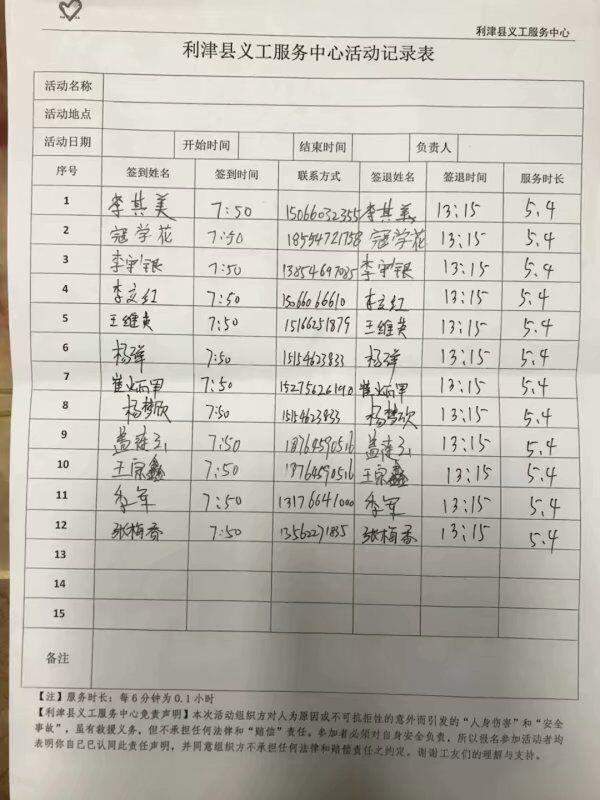 利津县义工服务中心
利津县义工服务中心活动记录表
活动名称
活动地点
活动日期 开始时间 结束时间 负责人
序号 签到姓名 签到时间 联系方式 签退姓名 签退时间 服务时长
1 李其美 7:50 15066032355 李其美 13:15 5.4
2 寇学花 7:50 18554721758 寇学花 13:15 5.4
3 李守银 7:50 13854697085 李守银 13:15 5.4
4 李文红 7:50 15066066610 李文红 13:15 5.4
5 王维英 7:50 15166251879 王维英 13:15 5.4
6 杨萍 7:50 15154623833 杨萍 13:15 5.4
7 7:50 15275626190 13:15 5.4
8 杨梦欣 7:50 15154623833 杨梦欣 13:15 5.4
9 盖连玉 7:50 18764590516 盖连玉 13:15 5.4
10 王宗鑫 7:50 18764590516 王宗鑫 13:15 5.4
11 李军 7:50 13176641000 李军 13:15 5.4
12 张梅香 7:50 13562271835 张梅香 13:15 5.4
13
14
15
备注
【注】服务时长：每6分钟为0.1小时
【利津县义工服务中心免责声明】本次活动组织方对人为原因或不可抗拒性的意外而引发的“人身伤害”和“安全
事故”，虽有救援义务，但不承担任何法律和“赔偿”责任。参加者必须对自身安全负责，所以报名参加活动者均
表明你自己已认同此责任声明，并同意组织方不承担任何法律和赔偿责任之约定。谢谢工友们的理解与支持。